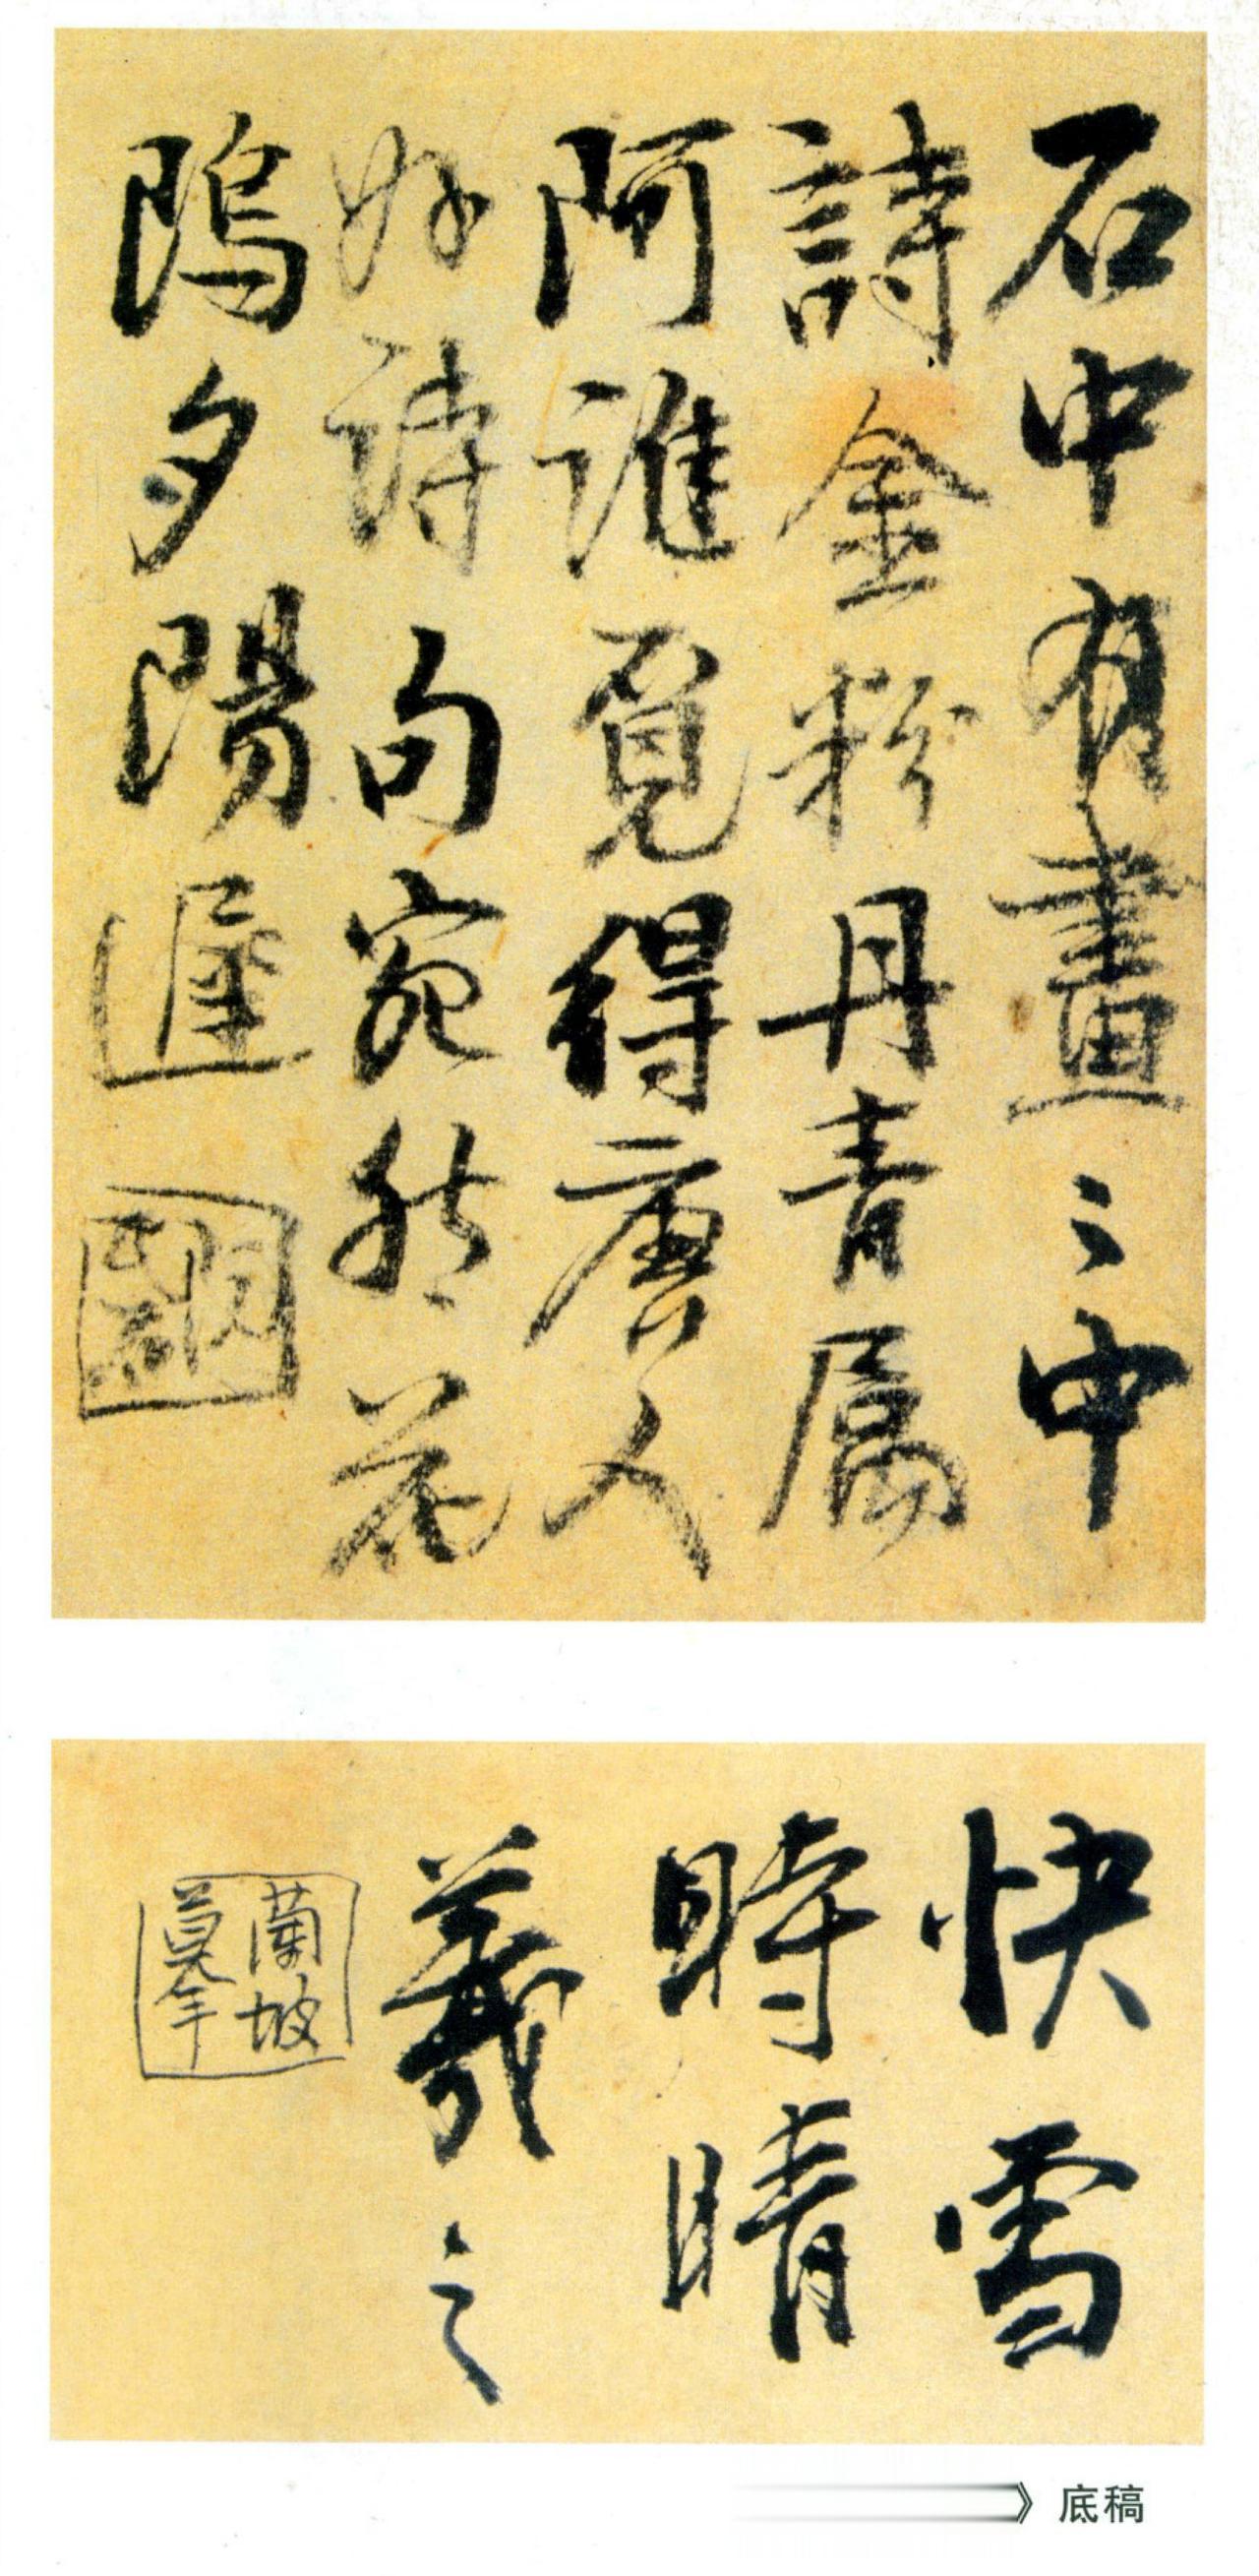 石中有畫=中
詩金粉丹青屬
阿誰覓得唐人
好詩句宛然花
隖夕陽遲
快雪
時晴
羲之
蘭坡
莫年
底稿